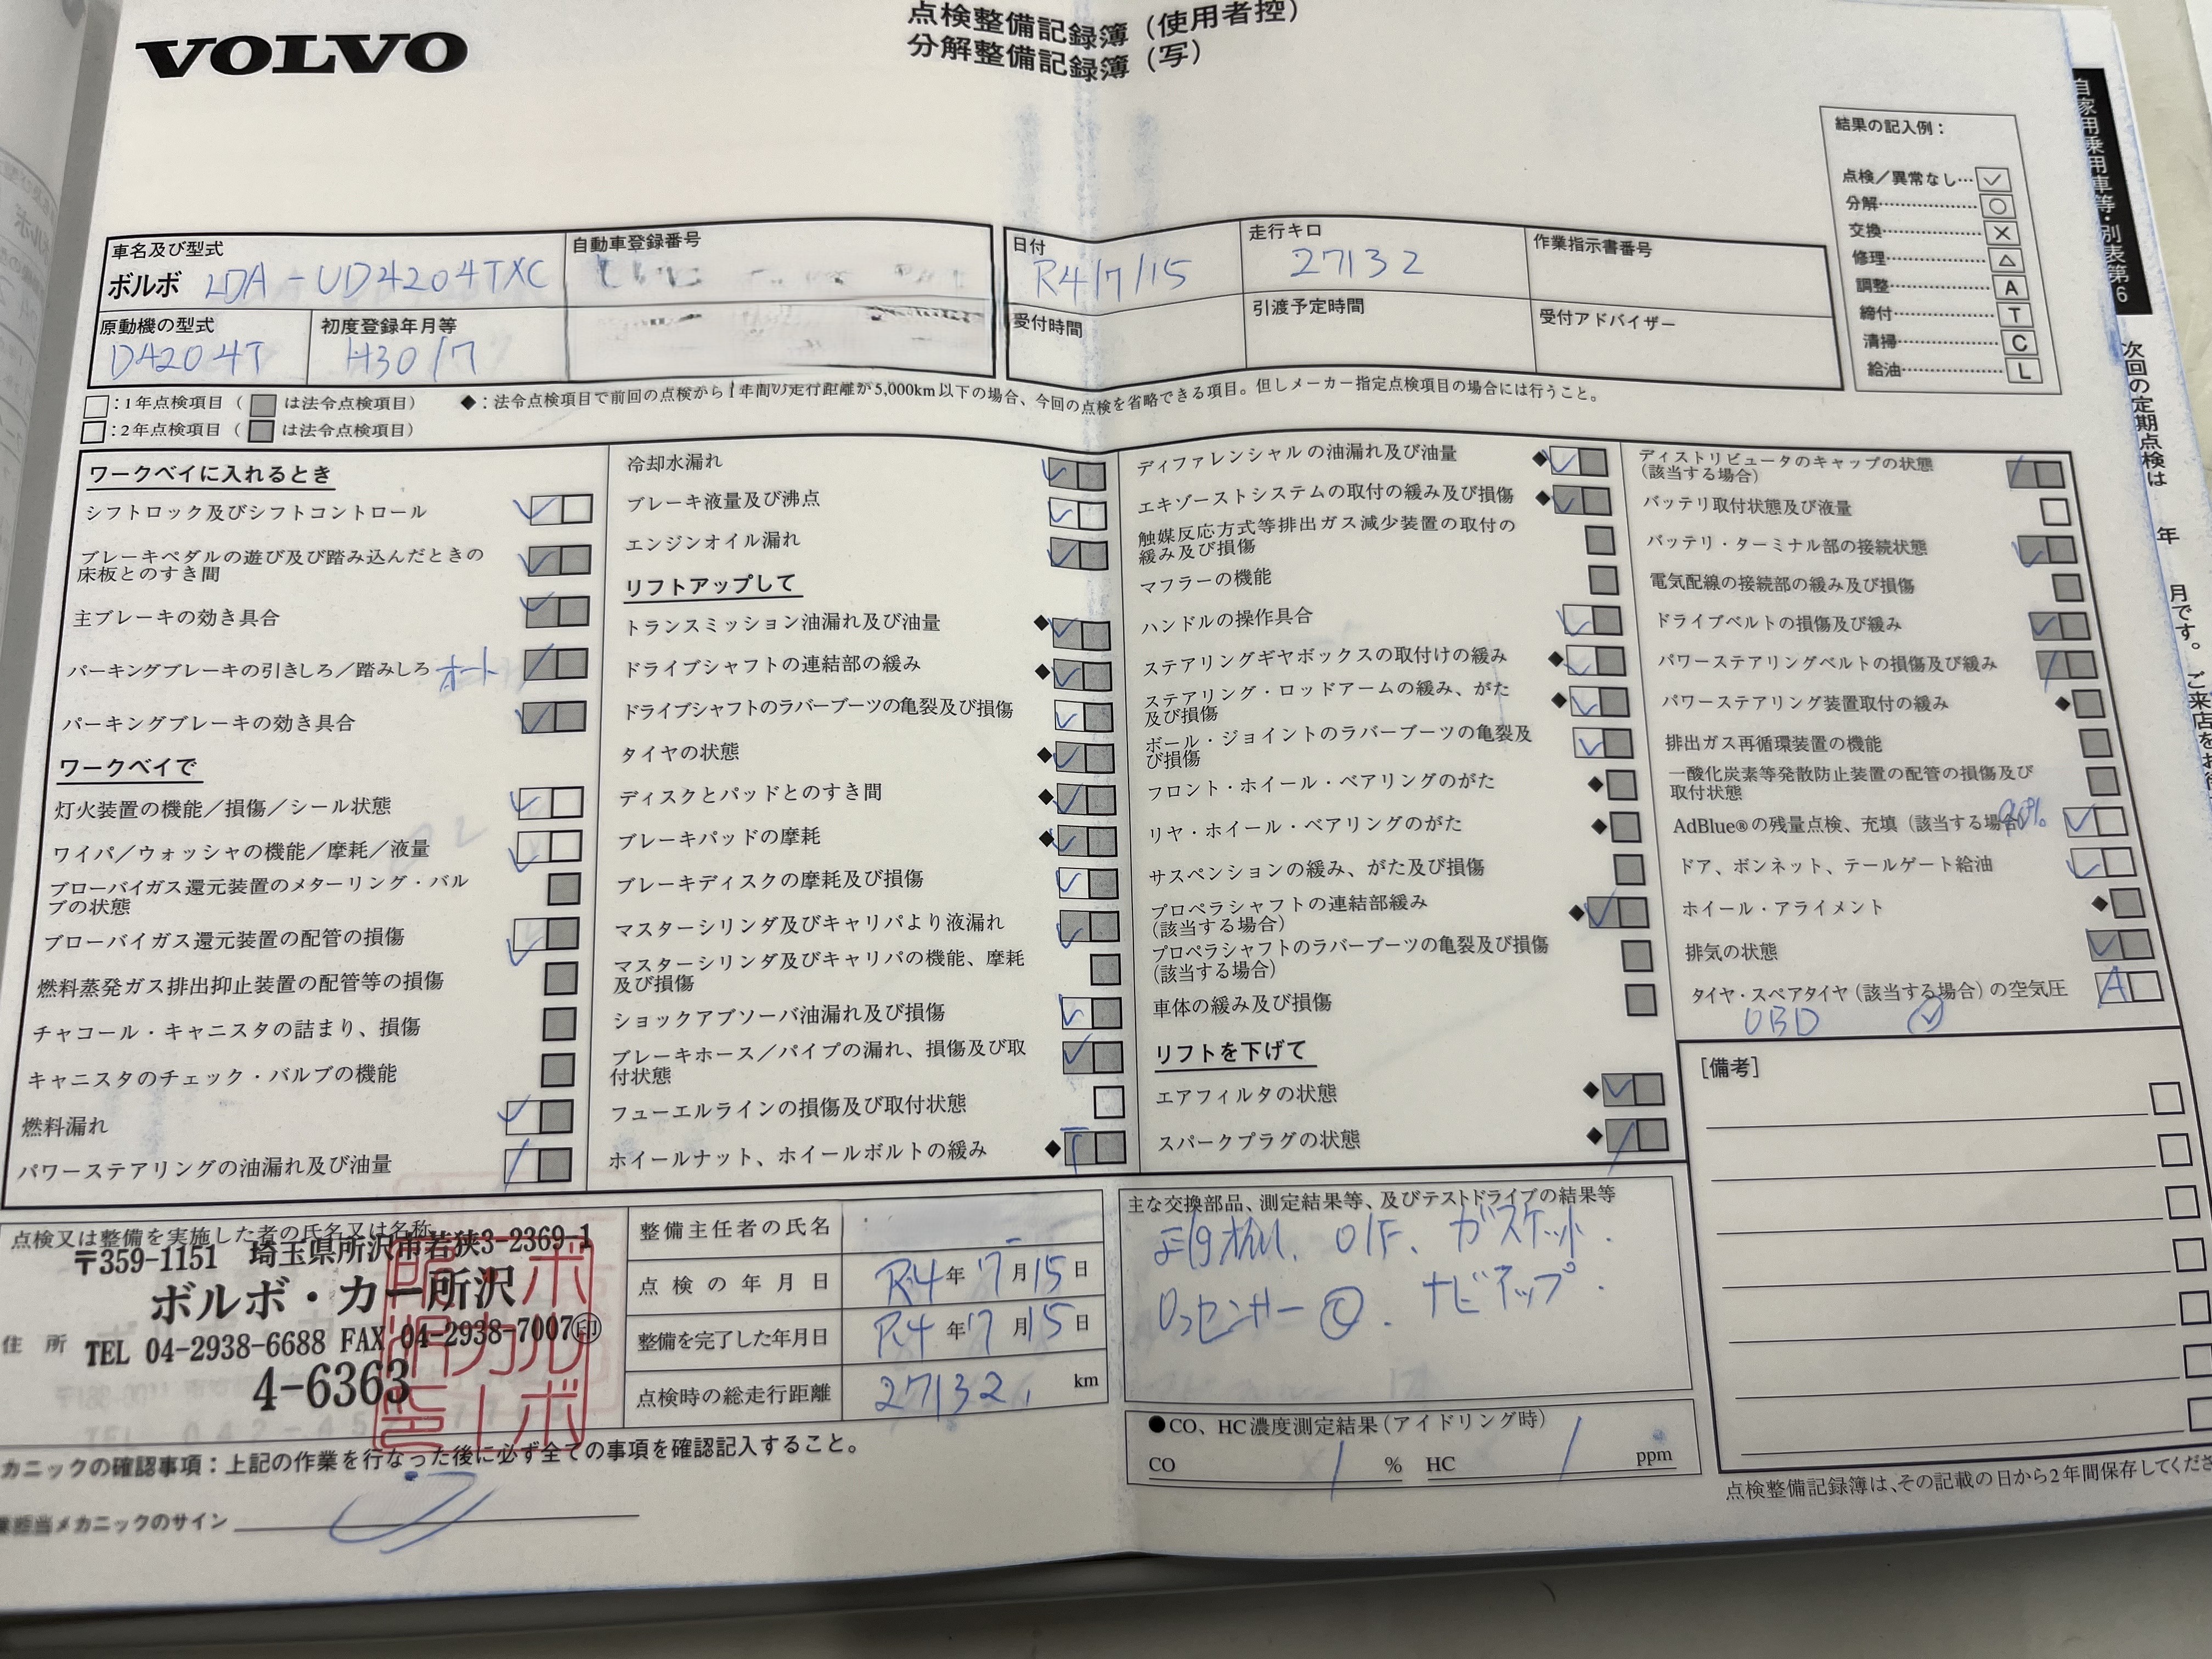 VOLVO
点検整備記録簿（使用者控）
分解整備記録簿（写）
自家用乗用車等・別表第6
次回の定期点検は 年 月です。
結果の記入例：
点検／異常なし…✓
分解…○
交換…×
修理…△
調整…A
締付…T
清掃…C
給油…L
車名及び型式
ボルボ LDA-UD4204TXC
自動車登録番号
原動機の型式
D4204T
初度登録年月等
H30/7
日付
R4/7/15
走行キロ
27132
作業指示書番号
受付時間
引渡予定時間
受付アドバイザー
□：1年点検項目（ は法令点検項目）
□：2年点検項目（ は法令点検項目）
◆：法令点検項目で前回の点検から1年間の走行距離が5,000km以下の場合、今回の点検を省略できる項目。但しメーカー指定点検項目の場合には行うこと。
ワークベイに入れるとき
シフトロック及びシフトコントロール
ブレーキペダルの遊び及び踏み込んだときの
床板とのすき間
主ブレーキの効き具合
パーキングブレーキの引きしろ／踏みしろ オート
パーキングブレーキの効き具合
ワークベイで
灯火装置の機能／損傷／シール状態
ワイパ／ウォッシャの機能／摩耗／液量
ブローバイガス還元装置のメターリング・バル
ブの状態
ブローバイガス還元装置の配管の損傷
燃料蒸発ガス排出抑止装置の配管等の損傷
チャコール・キャニスタの詰まり、損傷
キャニスタのチェック・バルブの機能
燃料漏れ
パワーステアリングの油漏れ及び油量
冷却水漏れ
ブレーキ液量及び沸点
エンジンオイル漏れ
リフトアップして
トランスミッション油漏れ及び油量
ドライブシャフトの連結部の緩み
ドライブシャフトのラバーブーツの亀裂及び損傷
タイヤの状態
ディスクとパッドとのすき間
ブレーキパッドの摩耗
ブレーキディスクの摩耗及び損傷
マスターシリンダ及びキャリパより液漏れ
マスターシリンダ及びキャリパの機能、摩耗
及び損傷
ショックアブソーバ油漏れ及び損傷
ブレーキホース／パイプの漏れ、損傷及び取
付状態
フューエルラインの損傷及び取付状態
ホイールナット、ホイールボルトの緩み T
ディファレンシャルの油漏れ及び油量
エキゾーストシステムの取付の緩み及び損傷
触媒反応方式等排出ガス減少装置の取付の
緩み及び損傷
マフラーの機能
ハンドルの操作具合
ステアリングギヤボックスの取付けの緩み
ステアリング・ロッドアームの緩み、がた
及び損傷
ボール・ジョイントのラバーブーツの亀裂及
び損傷
フロント・ホイール・ベアリングのがた
リヤ・ホイール・ベアリングのがた
サスペンションの緩み、がた及び損傷
プロペラシャフトの連結部緩み
（該当する場合）
プロペラシャフトのラバーブーツの亀裂及び損傷
（該当する場合）
車体の緩み及び損傷
リフトを下げて
エアフィルタの状態
スパークプラグの状態
ディストリビュータのキャップの状態
（該当する場合）
バッテリ取付状態及び液量
バッテリ・ターミナル部の接続状態
電気配線の接続部の緩み及び損傷
ドライブベルトの損傷及び緩み
パワーステアリングベルトの損傷及び緩み
パワーステアリング装置取付の緩み
排出ガス再循環装置の機能
一酸化炭素等発散防止装置の配管の損傷及び
取付状態
AdBlue®の残量点検、充填（該当する場合）
ドア、ボンネット、テールゲート給油
ホイール・アライメント
排気の状態
タイヤ・スペアタイヤ（該当する場合）の空気圧 A
OBD ✓
[備考]
点検又は整備を実施した者の氏名又は名称
〒359-1151 埼玉県所沢市若狭3-2369-1
ボルボ・カー所沢
住所
TEL 04-2938-6688 FAX 04-2938-7007 ㊞
4-6363
整備主任者の氏名
点検の年月日 R4年7月15日
整備を完了した年月日 R4年7月15日
点検時の総走行距離 27132 km
主な交換部品、測定結果等、及びテストドライブの結果等
O/F、ガスケット.
センサー Ⓒ. ナビアップ.
●CO、HC濃度測定結果（アイドリング時）
CO / % HC / ppm
カニックの確認事項：上記の作業を行なった後に必ず全ての事項を確認記入すること。
担当メカニックのサイン
点検整備記録簿は、その記載の日から2年間保存してくださ